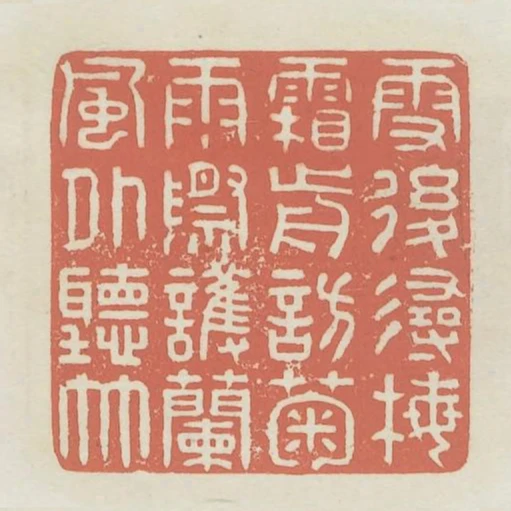 雪後尋梅
霜前訪菊
雨際護蘭
風外聽竹